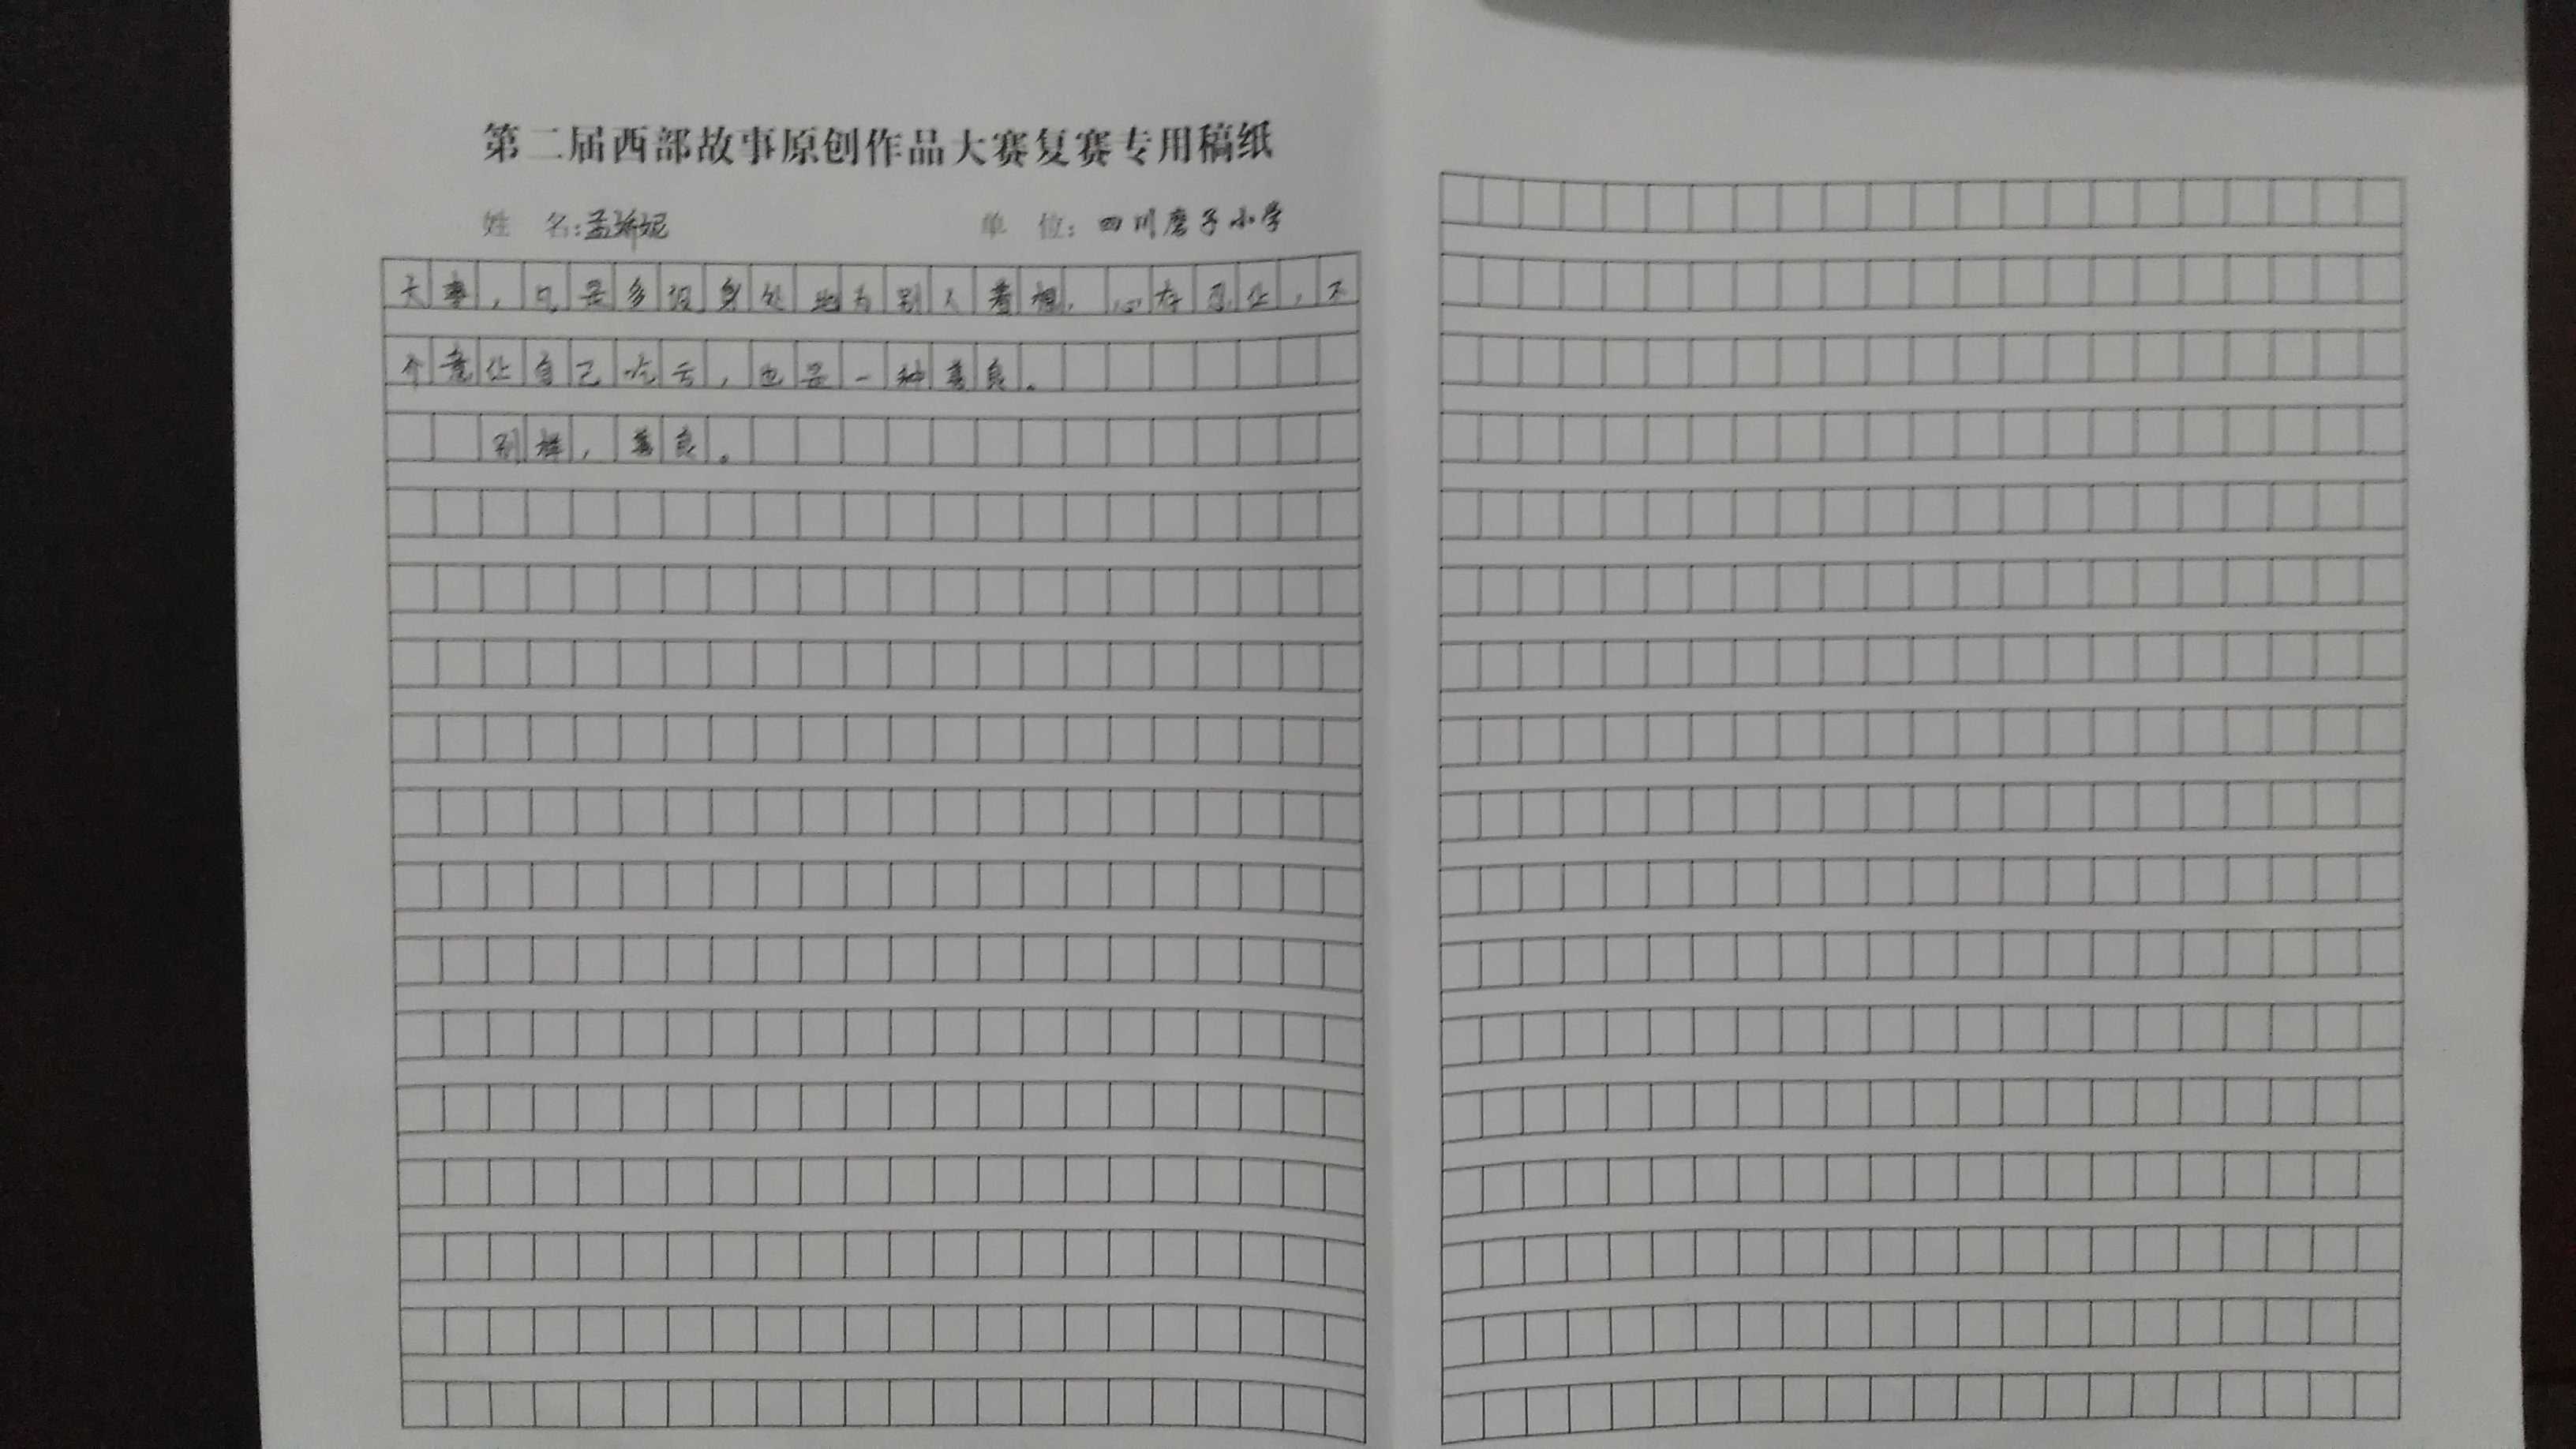 第二届西部故事原创作品大赛复赛专用稿纸
姓 名:孟妮 单 位:四川磨子小学
大事,只是多设身处地为别人着想,心存忍让,不
介意让自己吃亏,也是一种善良。
别样,善良。